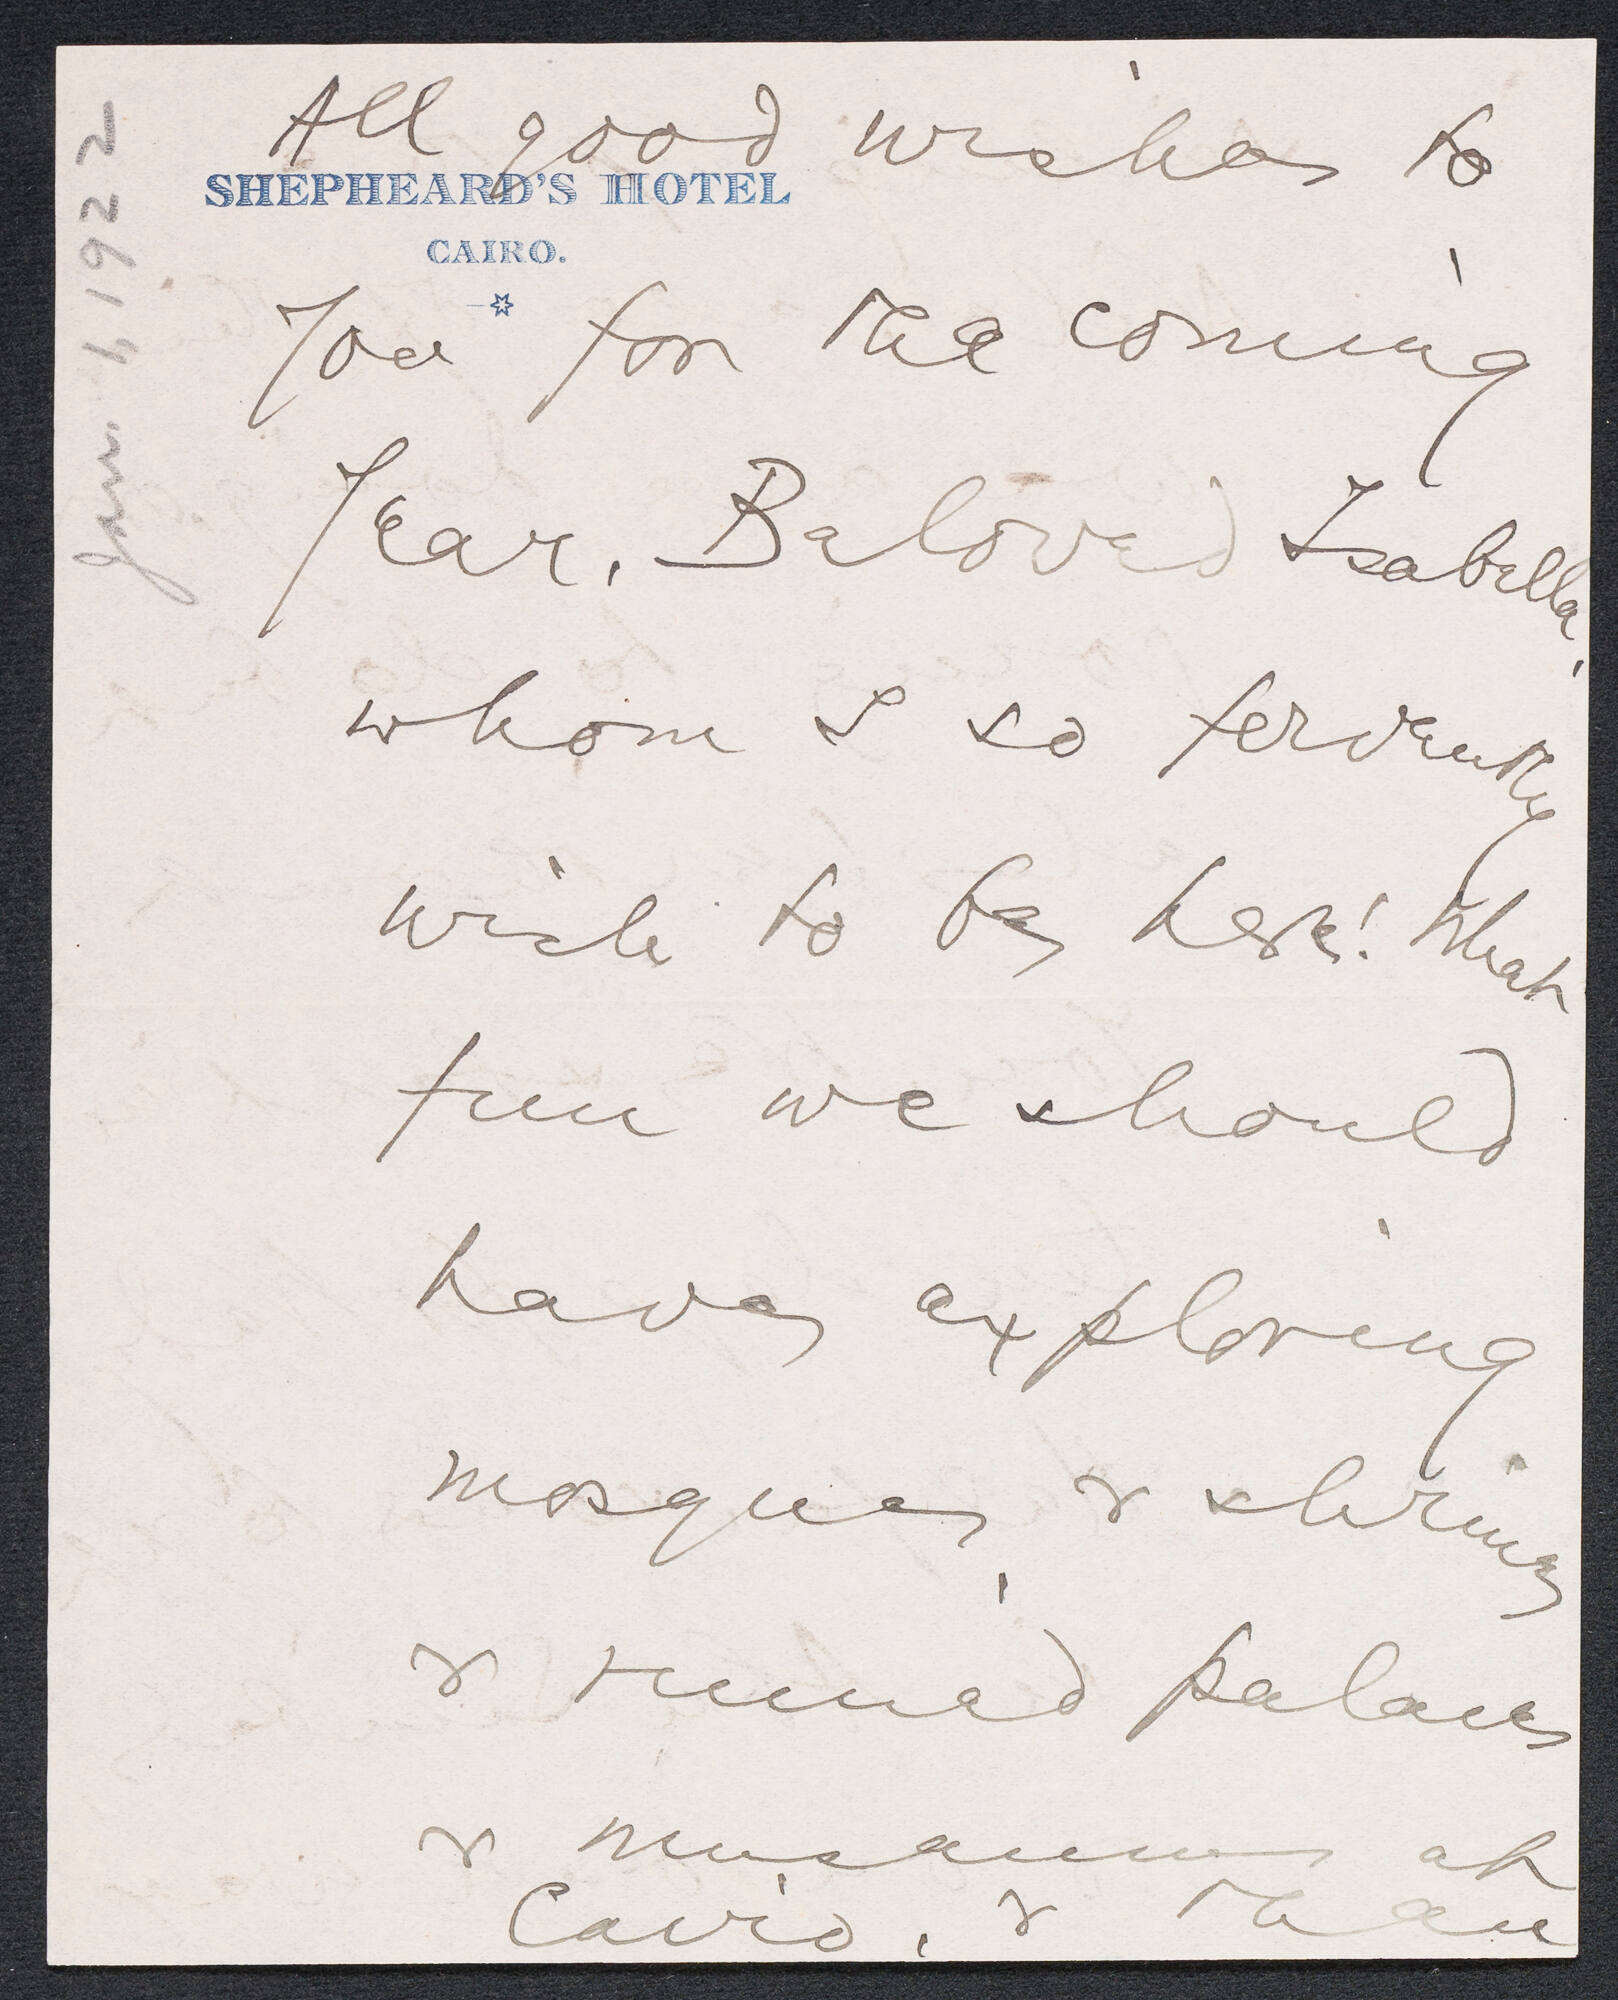 Jan. 1, 1922
All good wishes to
SHEPHEARD'S HOTEL
CAIRO.
You for the coming
Year, Beloved Isabella,
whom I so fervently
wish to be here! What
fun we should
have exploring
mosques & shrines
& ruined palaces
& museums at
Cairo, & then